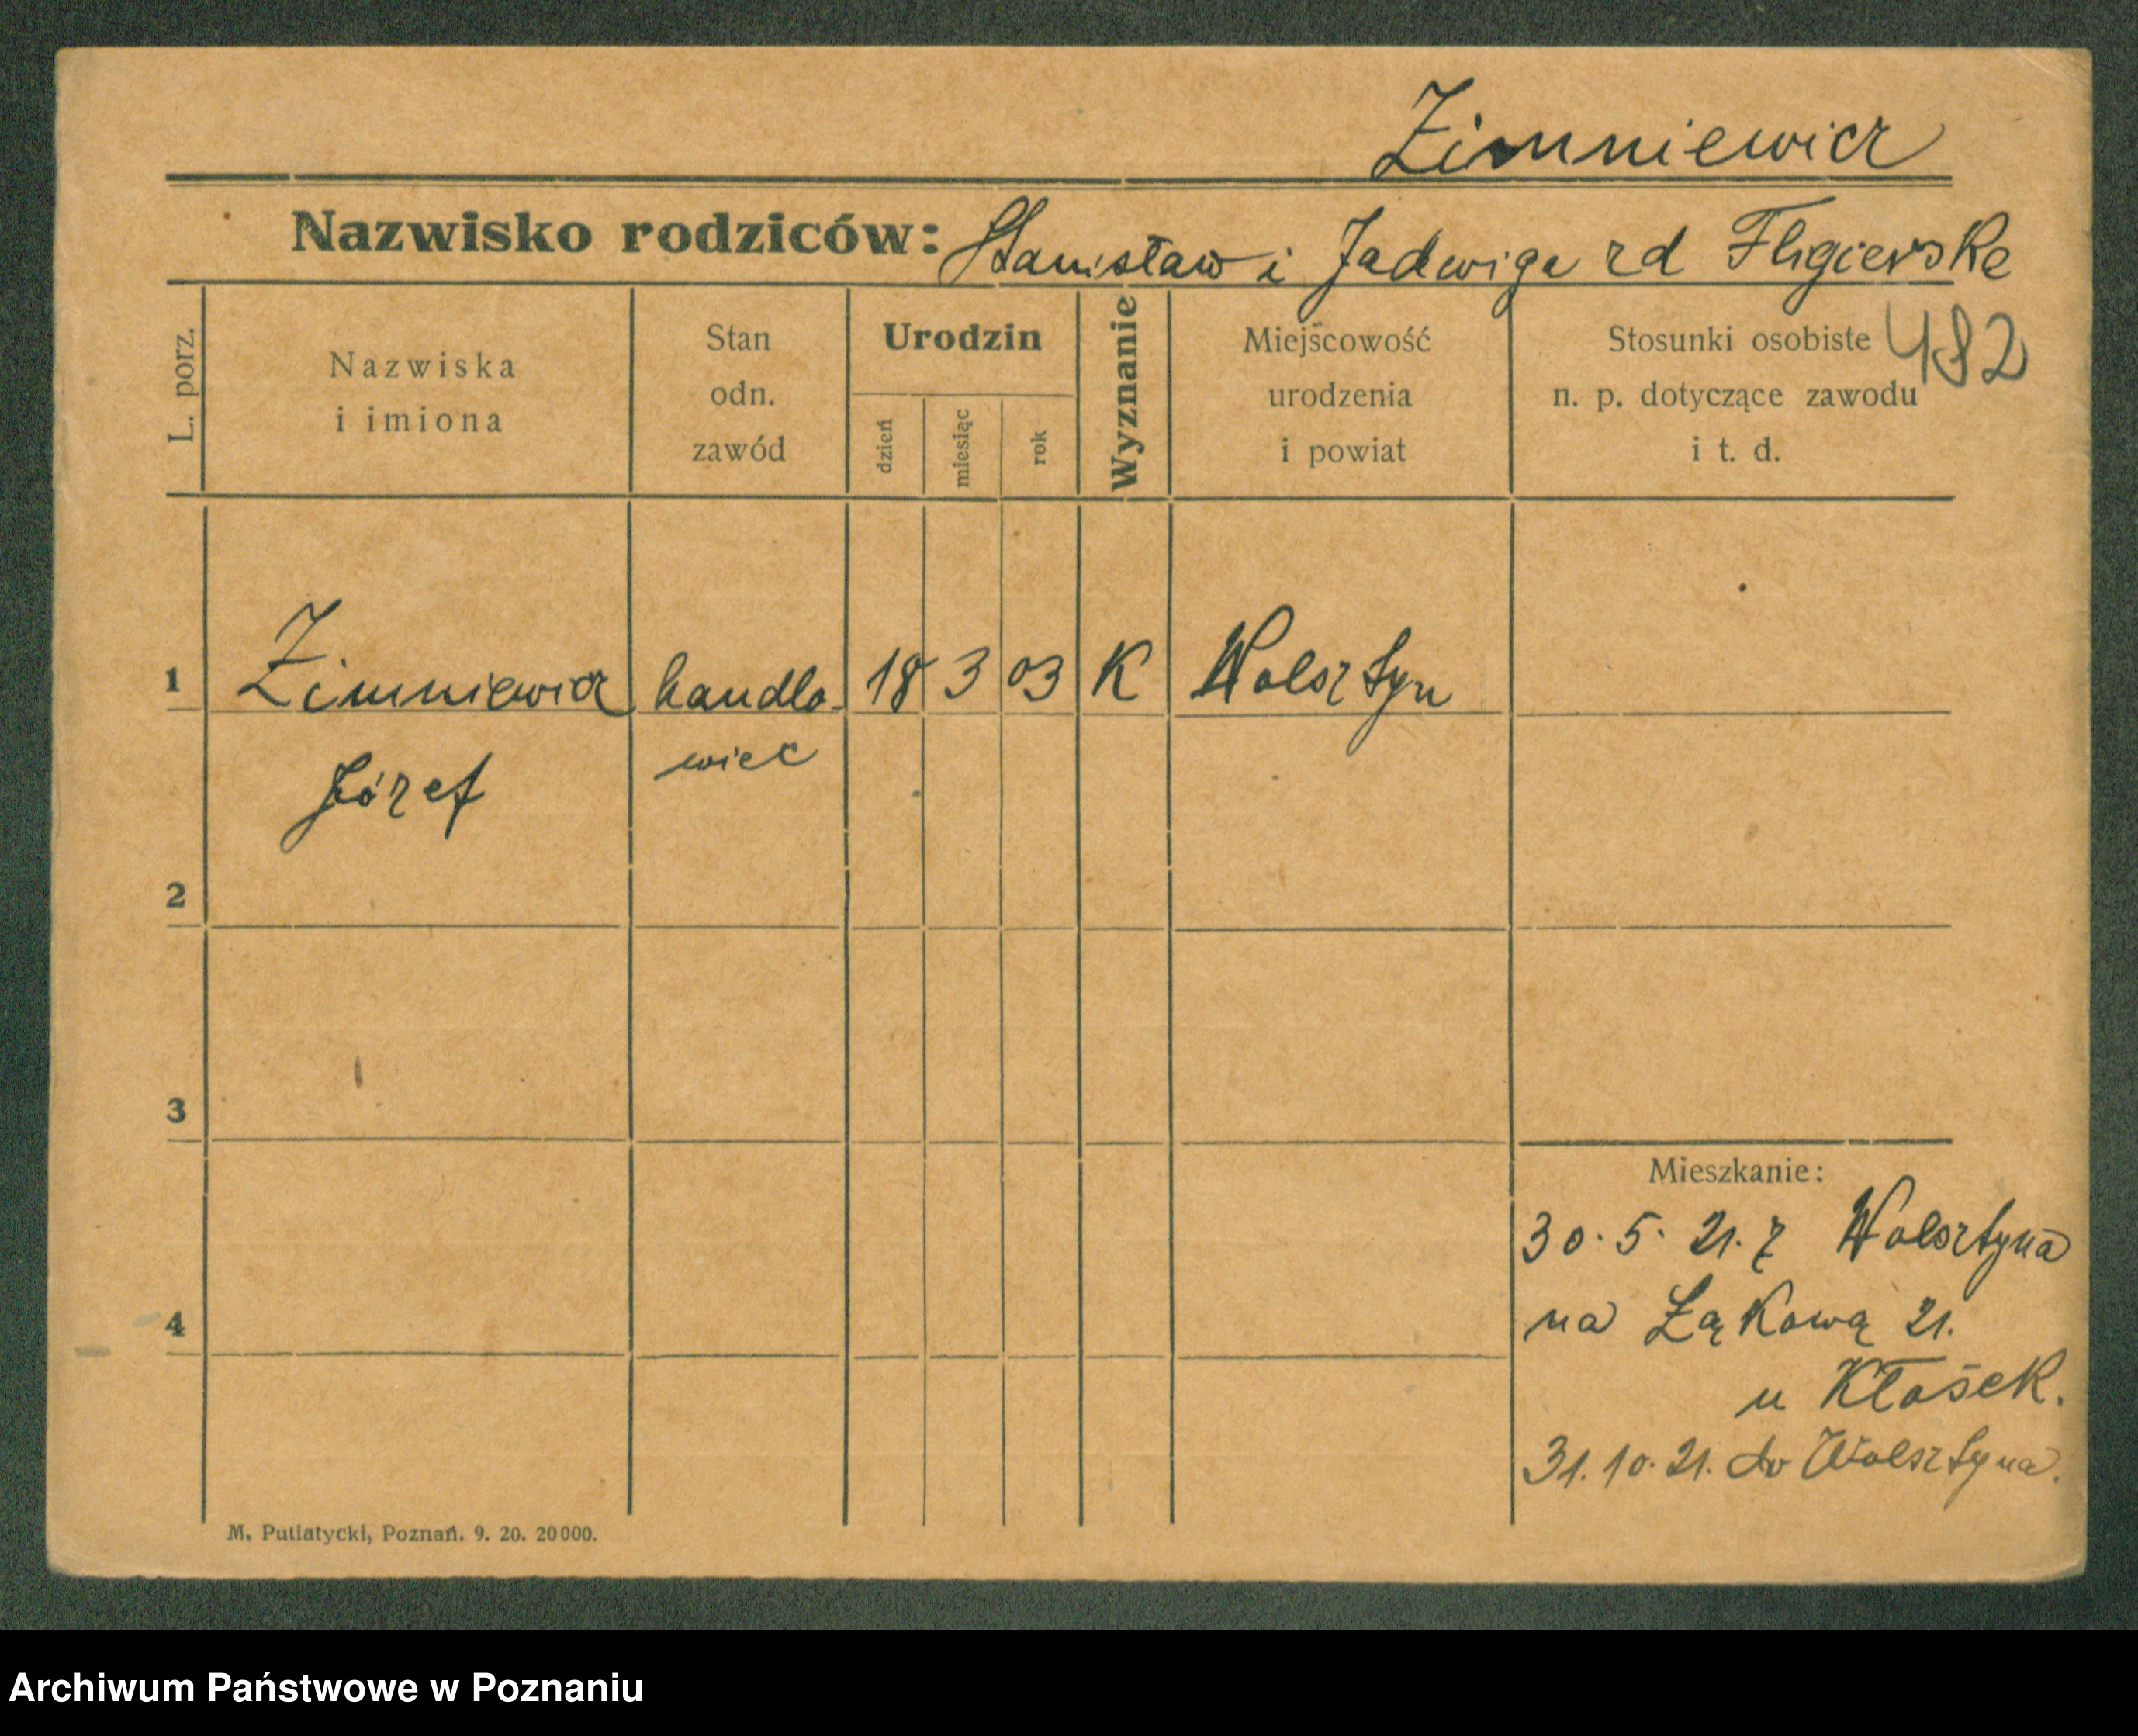 Zimniewicz
Nazwisko rodziców: Stanisław i Jadwiga zd Fligierska
482
L. porz.
Nazwiska
i imiona
Stan
odn.
zawód
Urodzin
dzień
miesiąc
rok
Wyznanie
Miejscowość
urodzenia
i powiat
Stosunki osobiste
n. p. dotyczące zawodu
i t. d.
1 Zimniewicz handlo- 18 3 03 K Wolsztyn
wiec
Józef
2
3
Mieszkanie:
30. 5. 21. z Wolsztyna
na Łąkową 21.
4
u Kłosek.
31. 10. 21. do Wolsztyna.
M. Putiatycki, Poznań. 9. 20. 20000.
Archiwum Państwowe w Poznaniu